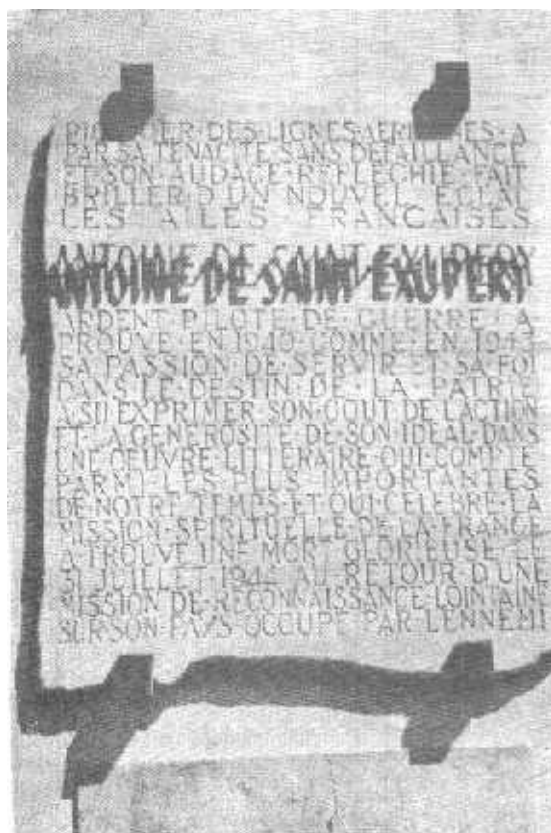 PIONNIER·DES·LIGNES·AERIENNES·A
PAR·SA·TENACITE·SANS·DEFAILLANCE
ET·SON·AUDACE·REFLECHIE·FAIT
BRILLER·D'UN·NOUVEL·ECLAT
LES AILES FRANCAISES
ANTOINE DE SAINT EXUPERY
ARDENT·PILOTE·DE·GUERRE·A
PROUVE·EN·1940·COMME·EN·1943
SA·PASSION·DE·SERVIR·ET·SA·FOI
DANS·LE·DESTIN·DE·LA·PATRIE
A·SU·EXPRIMER·SON·GOUT·DE·L'ACTION
ET·LA·GENEROSITE·DE·SON·IDEAL·DANS
UNE·OEUVRE·LITTERAIRE·QUI·COMPTE
PARMI·LES·PLUS·IMPORTANTES
DE·NOTRE·TEMPS·ET·QUI·CELEBRE·LA
MISSION·SPIRITUELLE·DE·LA·FRANCE
A·TROUVE·UNE·MORT·GLORIEUSE·LE
31·JUILLET·1944·AU·RETOUR·D'UNE
MISSION·DE·RECONNAISSANCE·LOINTAINE
SUR·SON·PAYS·OCCUPE·PAR·L'ENNEMI